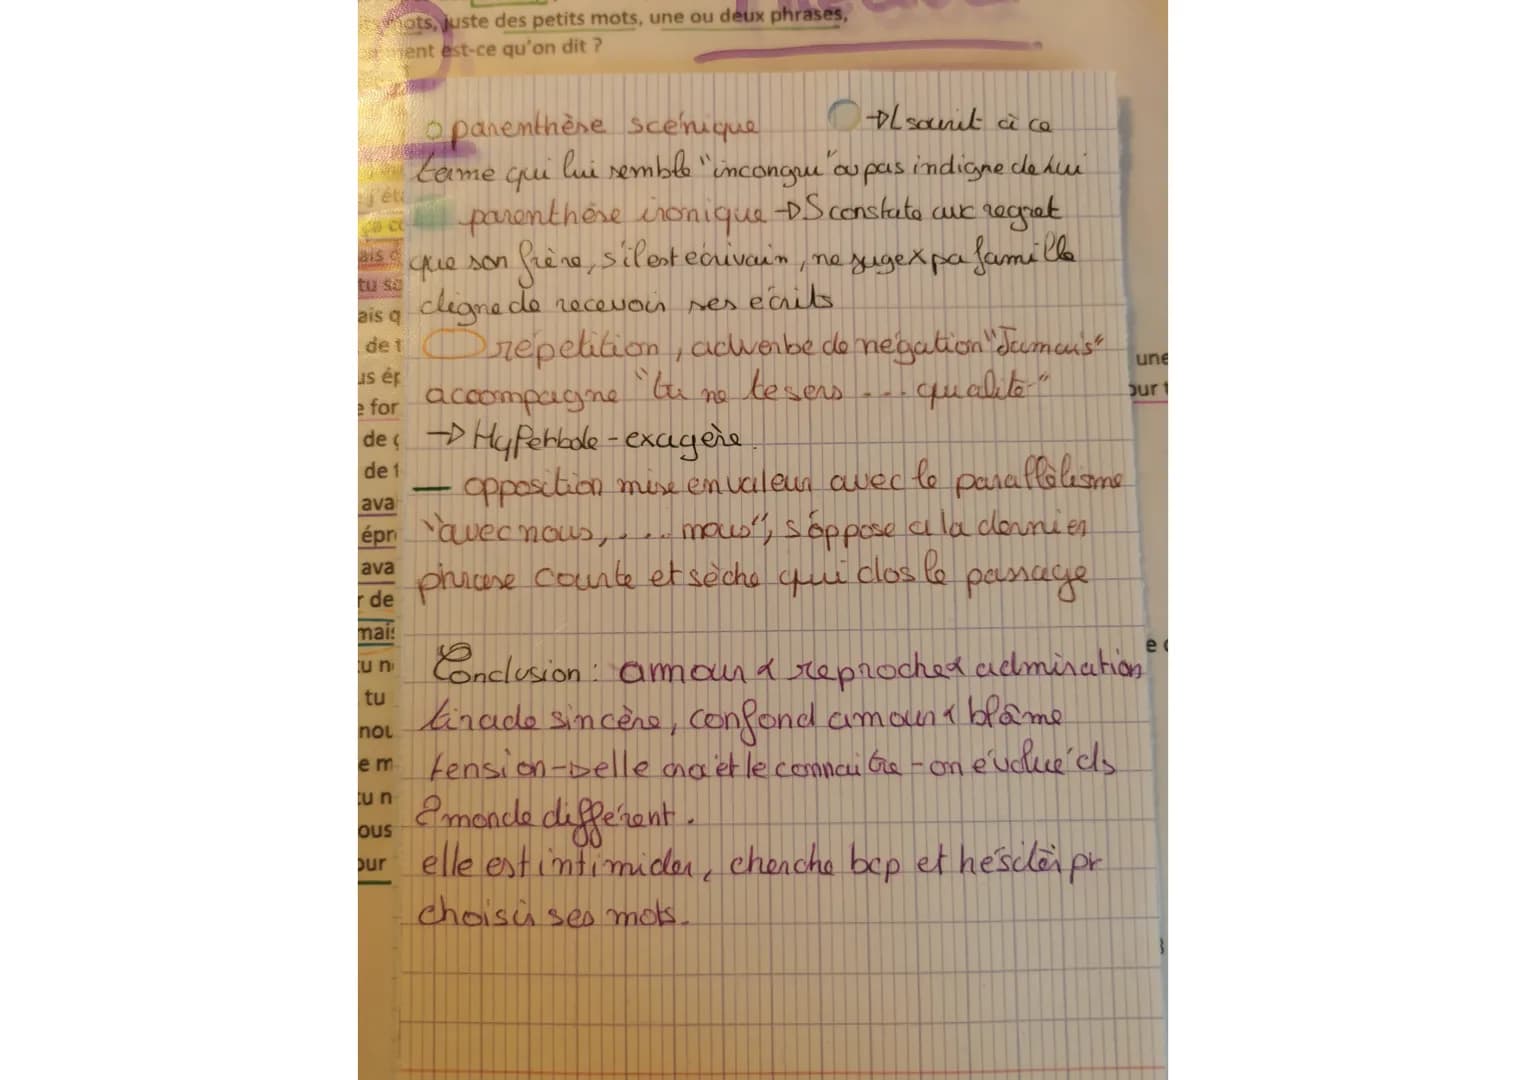 mots, juste des petits mots, une ou deux phrases,
ment est-ce qu'on dit ?
parenthèse scénique →L sourit à ce
terme qui lui semble "incongru" ou pas indigne de lui
parenthèse ironique → S constate avc regret
que son frère, s'il est écrivain, ne juge x pa famille
digne de recevoir ses écrits
répétition, adverbe de négation "Jamais"
accompagne "tu ne te sers ... qualité"
→ Hyperbole - exagère.
— opposition mise en valeur avec le parallèlisme
"avec nous, .... nous", s'oppose a la dernier
phrase courte et sèche qui clos le passage
Conclusion : amour & reproche & admiration
tirade sincère, confond amour & blâme
tension - elle le connaitre - on évolué ds
2 monde différent.
elle est intimider, cherche bcp et hésiter pr
choisir ses mots.
j'éta
ça co
ais
tu sa
ais q
de t
us ép
e for
de
de
ava
épr
ava
r de
mais
tu n
tu
nou
e m
tu n
ous
our
une
our t
e